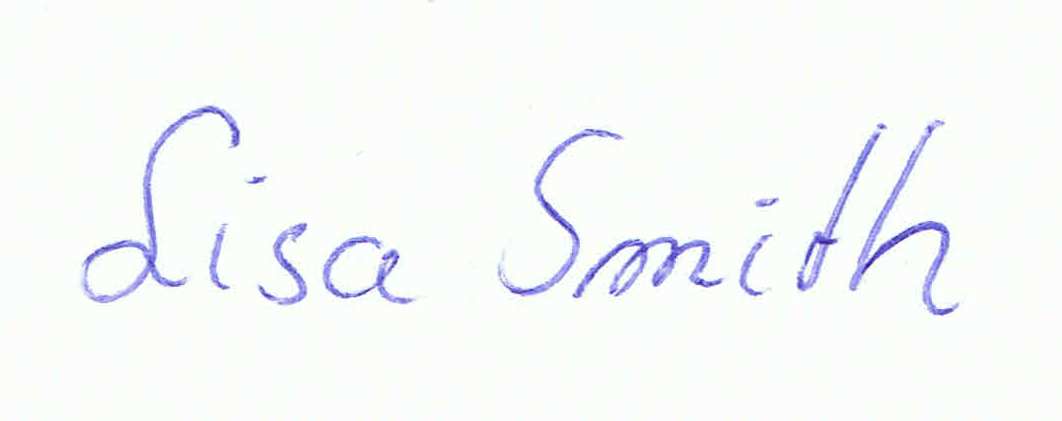 Lisa Smith